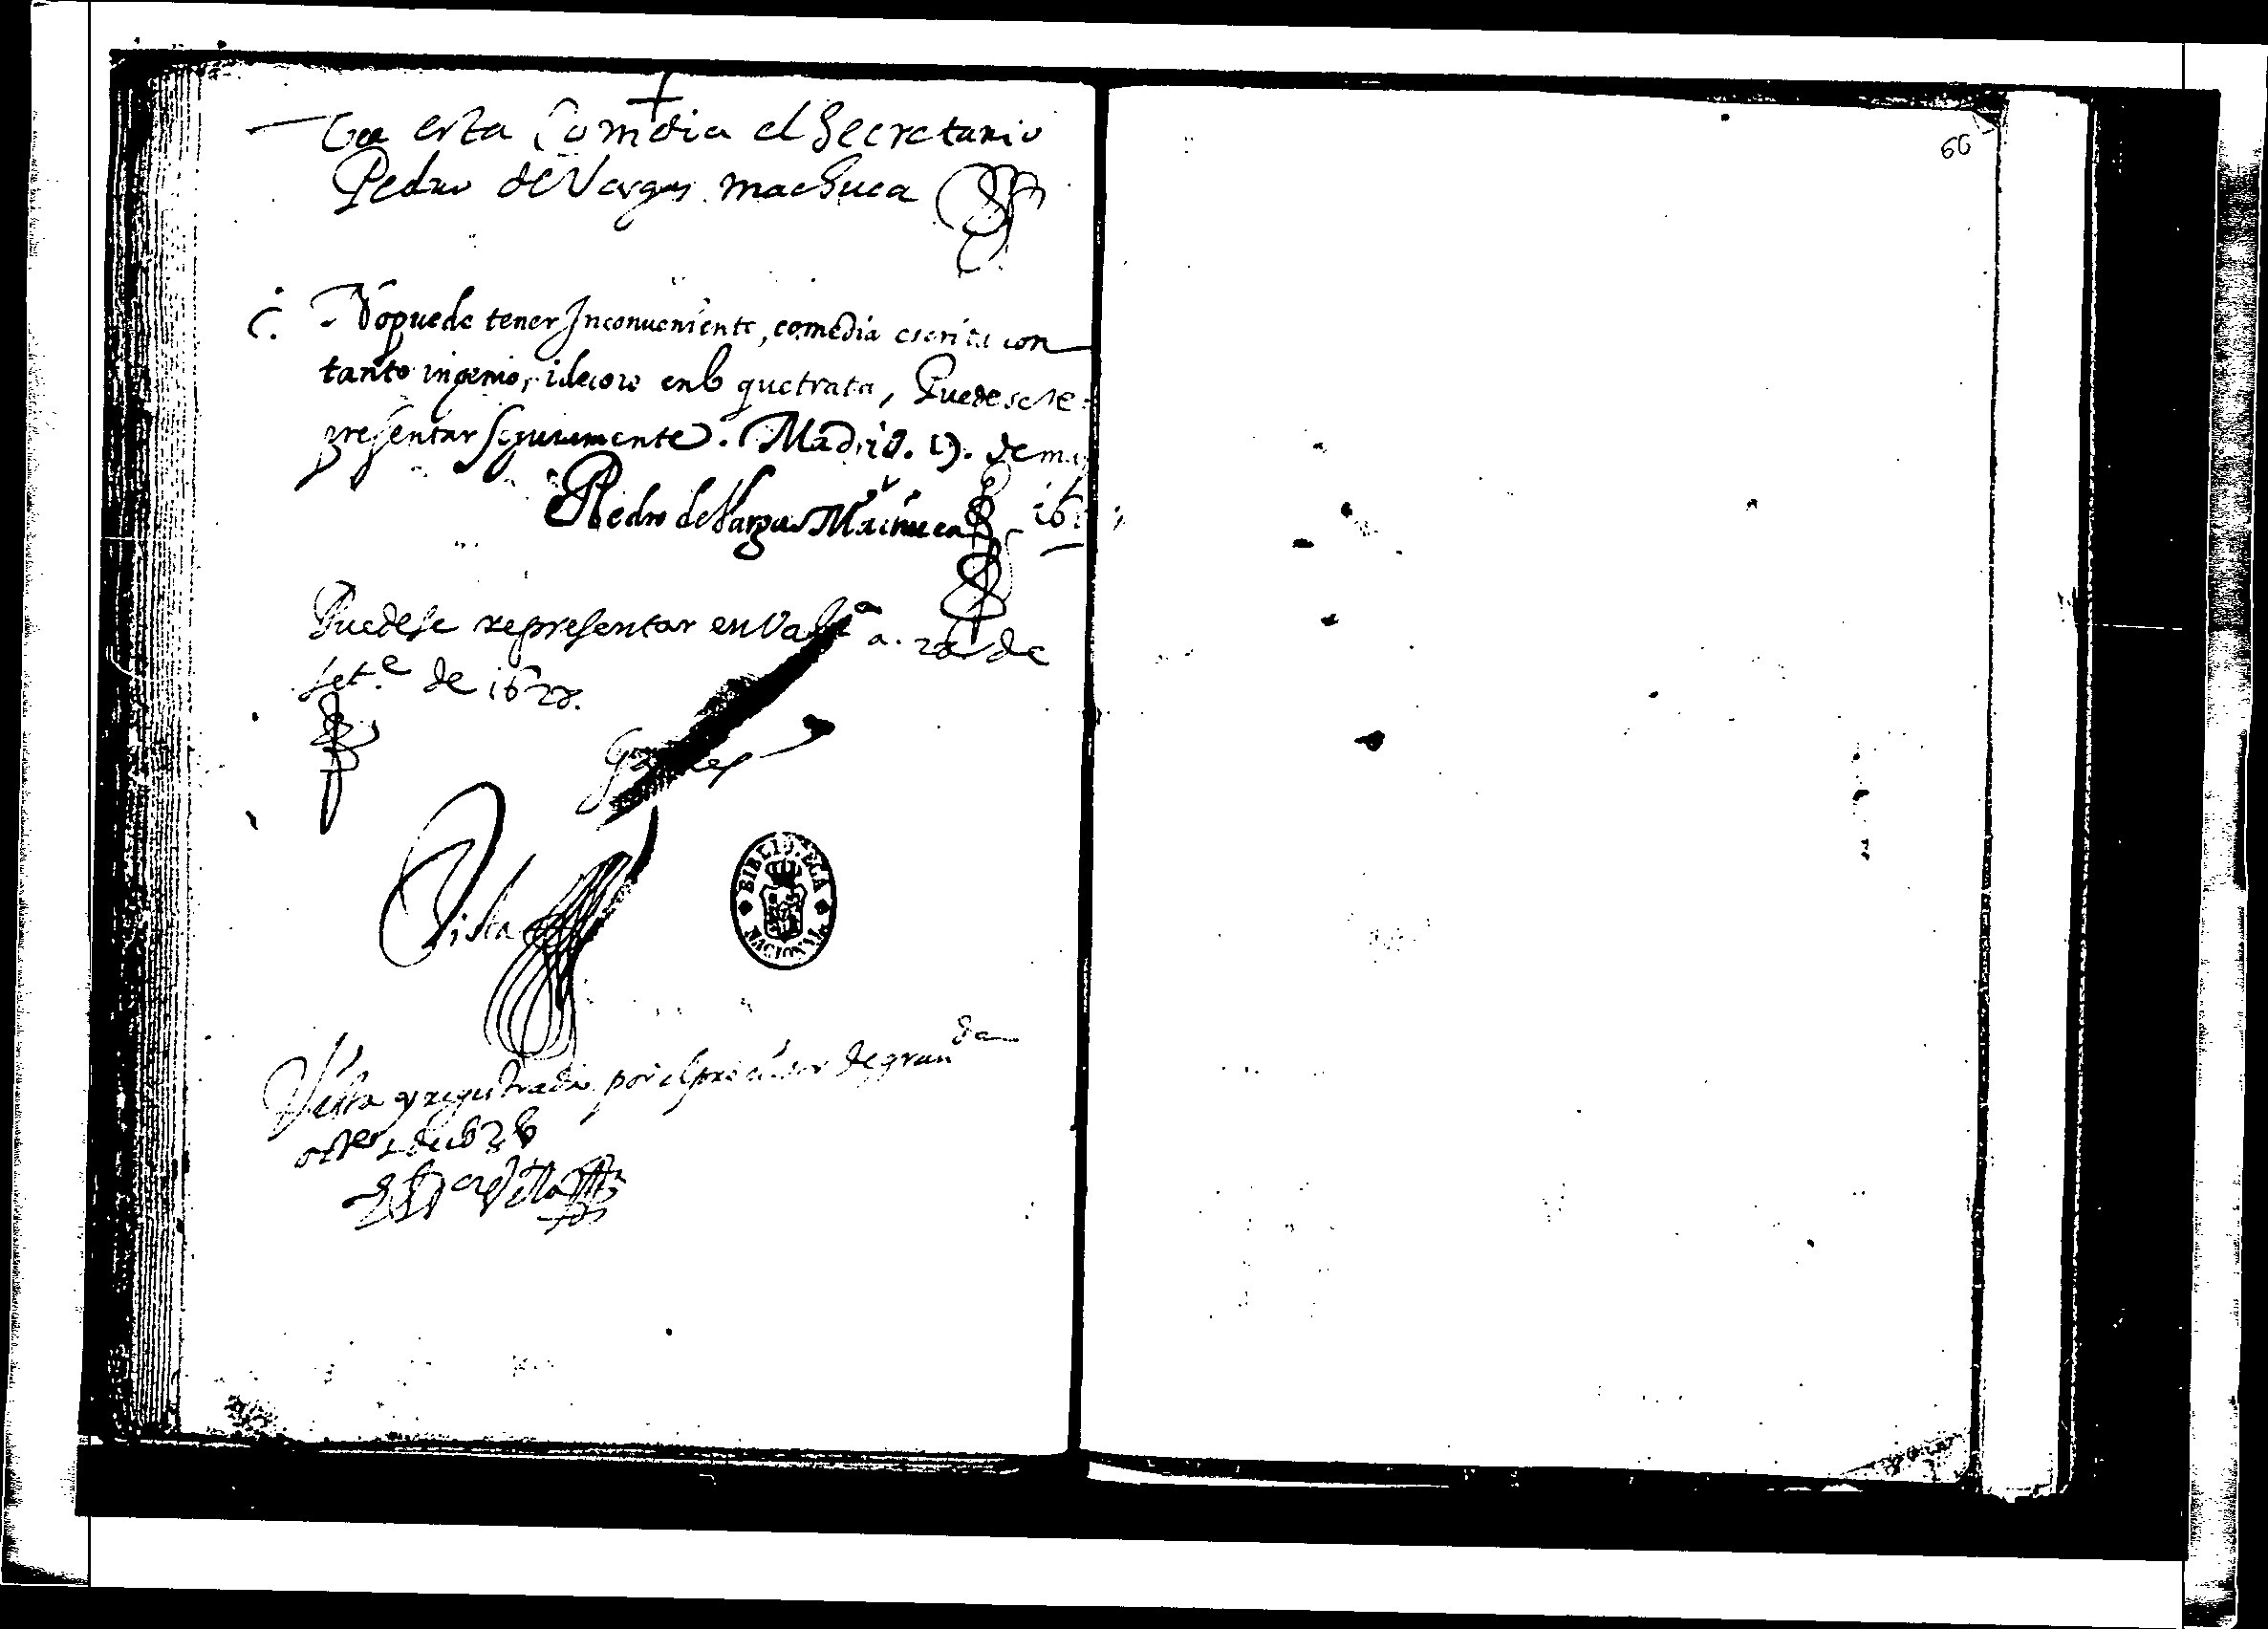 Vea esta Comedia el Secretario
Pedro de Vargas machuca
66
No puede tener Inconueniente, comedia escrita con
tanto ingenio, i decoro en lo que trata, Puedese re
presentar seguramente. Madrid. de
Pedro de Vargas Machuca
Puedese representar en Val.ª a. de
set.e de 1628.
Vista
BIBLIOTECA
NACIONAL
Vista y registrada por el de gran da